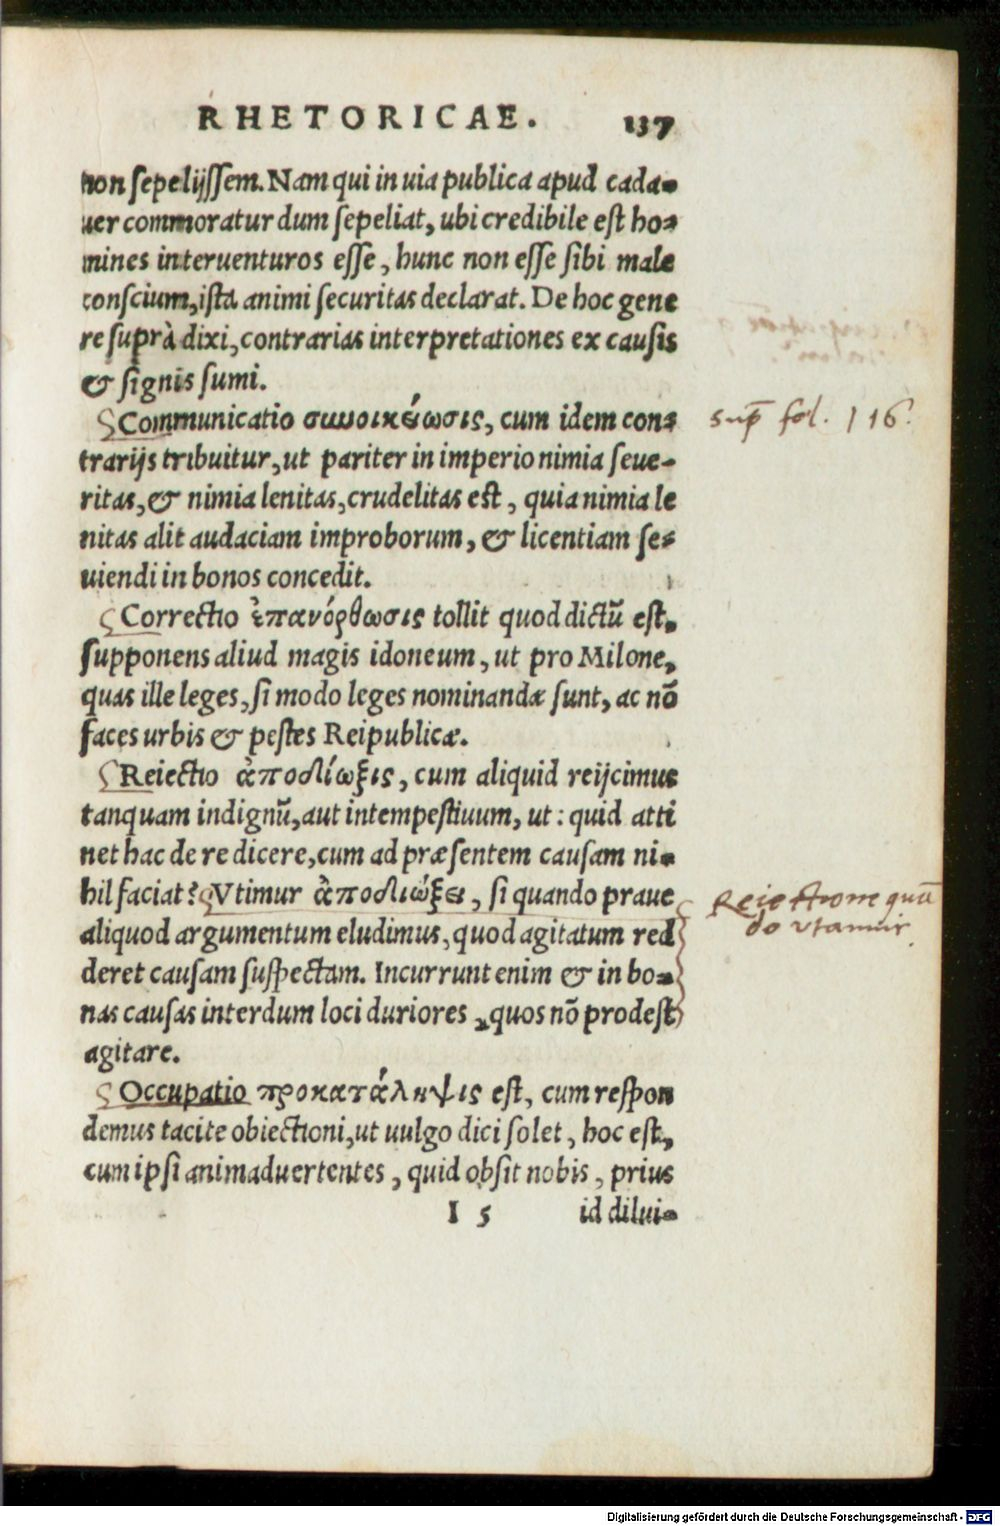 RHETORICAE. 137
non sepelijssem. Nam qui in uia publica apud cada-
uer commoratur dum sepeliat, ubi credibile est ho-
mines interuenturos esse, hunc non esse sibi male
conscium, ista animi securitas declarat. De hoc gene
re suprà dixi, contrarias interpretationes ex causis
& signis sumi.
Communicatio συνοικείωσις, cum idem con-
sup̄ fol. 116.
trarijs tribuitur, ut pariter in imperio nimia seue-
ritas, & nimia lenitas, crudelitas est, quia nimia le
nitas alit audaciam improborum, & licentiam se-
uiendi in bonos concedit.
Correctio ἐπανόρθωσις tollit quod dictū est,
supponens aliud magis idoneum, ut pro Milone,
quas ille leges, si modo leges nominandæ sunt, ac nō
faces urbis & pestes Reipublicæ.
Reiectio ἀποδίωξις, cum aliquid reijcimus
tanquam indignū, aut intempestiuum, ut: quid atti
net hac de re dicere, cum ad præsentem causam ni-
hil faciat? Vtimur ἀποδιώξει, si quando praue
Reiectione quā
do utamur.
aliquod argumentum eludimus, quod agitatum red
deret causam suspectam. Incurrunt enim & in bo-
nas causas interdum loci duriores, quos nō prodest
agitare.
Occupatio προκατάληψις est, cum respon
demus tacite obiectioni, ut uulgo dici solet, hoc est,
cum ipsi animaduertentes, quid obsit nobis, prius
I 5 id dilui-
Digitalisierung gefördert durch die Deutsche Forschungsgemeinschaft - DFG